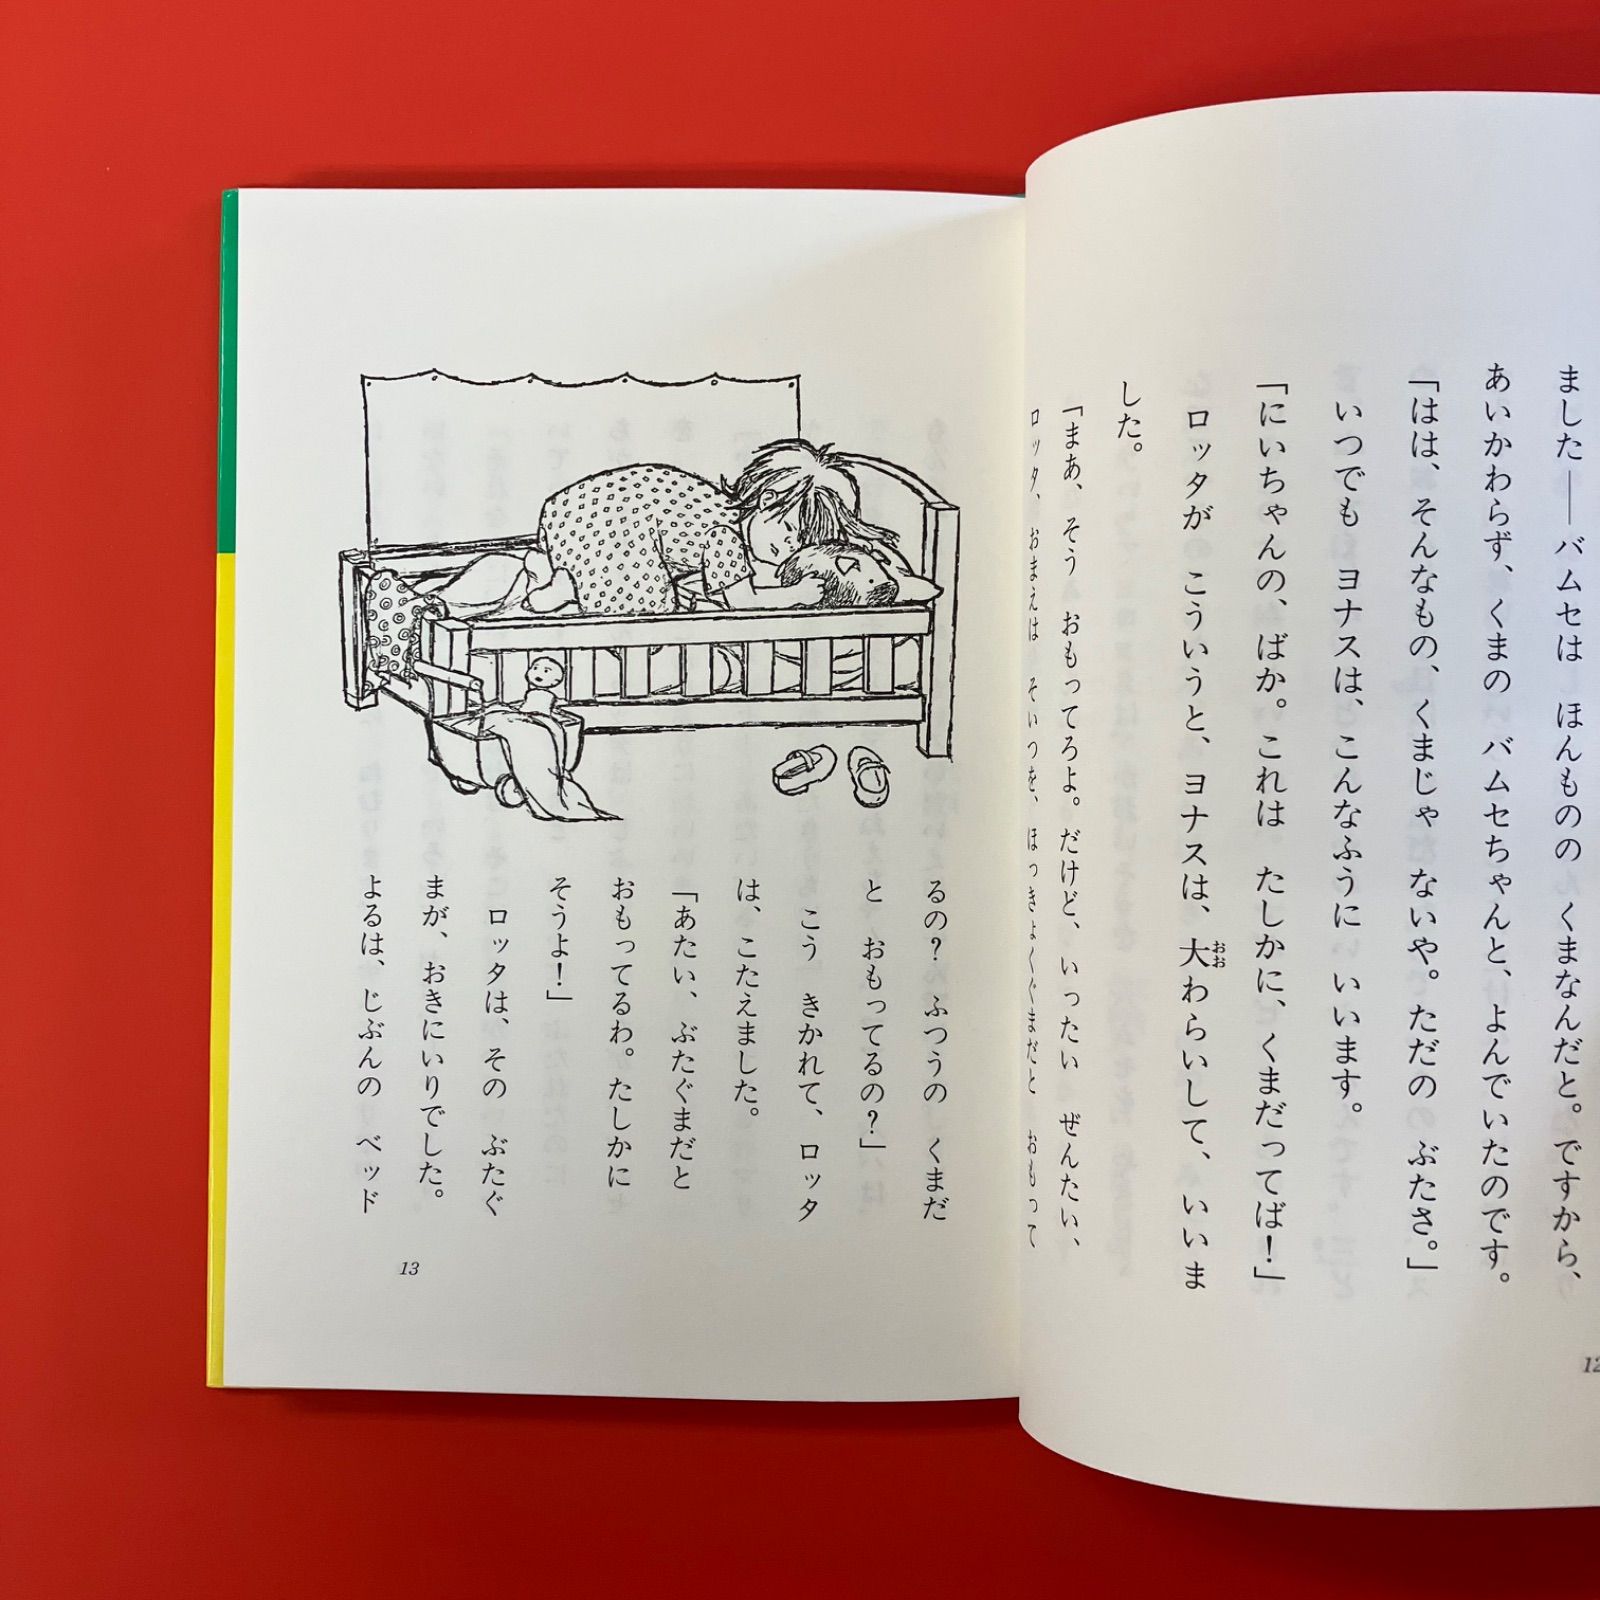 ました――バムセは ほんものの くまなんだと。ですから、
あいかわらず、くまの バムセちゃんと、よんでいたのです。
「はは、そんなもの、くまじゃ ないや。ただの ぶたさ。」
いつでも ヨナスは、こんなふうに いいます。
「にいちゃんの、ばか。これは たしかに、くまだってば！」
ロッタが こういうと、ヨナスは、大わらいして、いいま
おお
した。
「まあ、そう おもってろよ。だけど、いったい ぜんたい、
ロッタ、おまえは そいつを、ほっきょくぐまだと おもって
12
るの？ ふつうの くまだ
と おもってるの？」
こう きかれて、ロッタ
は、こたえました。
「あたい、ぶたぐまだと
おもってるわ。たしかに
そうよ！」
ロッタは、その ぶたぐ
まが、おきにいりでした。
よるは、じぶんの ベッド
13